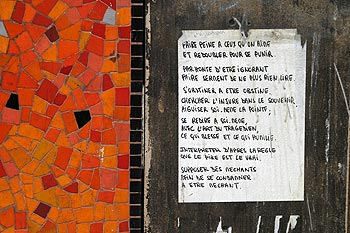 FAIRE PEINE A CEUX QU'ON AIDE
ET REDOUBLER POUR SE PUNIR.
PAR HONTE D'ETRE IGNORANT
FAIRE SERMENT DE NE PLUS RIEN LIRE
S'OBSTINER A ETRE OBSTINE.
CHERCHER L'INJURE DANS LE SOUVENIR.
AIGUISER SOI-MEME LA POINTE,
SE REDIRE A SOI-MEME,
AVEC L'ART DU TRAGEDIEN,
CE QUI BLESSE ET CE QUI HUMILIE.
INTERPRETER D'APRES LA REGLE
QUE LE PIRE EST LE VRAI.
SUPPOSER DES MECHANTS
AFIN DE SE CONDAMNER
A ETRE MECHANT.